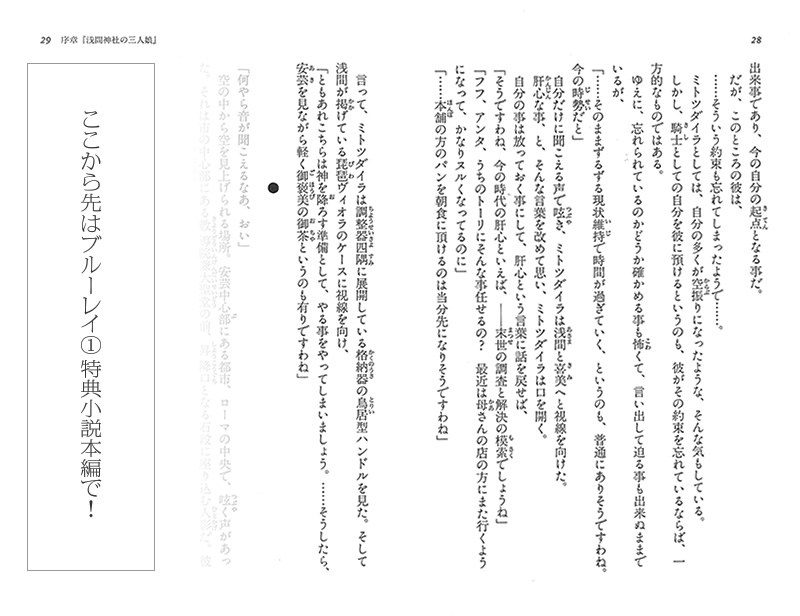 28
出来事であり、今の自分の起点となる事だ。
だが、このところの彼は、
……そういう約束も忘れてしまったようで……。
ミトツダイラとしては、自分の多くが空振りになったような、そんな気もしている。
しかし、騎士としての自分を彼に預けるというのも、彼がその約束を忘れているならば、一
方的なものではある。
ゆえに、忘れられているのかどうか確かめる事も怖くて、言い出して迫る事も出来ぬままで
いるが、
「……そのままずるずる現状維持で時間が過ぎていく、というのも、普通にありそうですわね。
今の時勢だと」
自分だけに聞こえる声で呟き、ミトツダイラは浅間と喜美へと視線を向けた。
肝心な事、と、そんな言葉を改めて思い、ミトツダイラは口を開く。
自分の事は放っておく事にして、肝心という言葉に話を戻せば、
「そうですわね、今の時代の肝心といえば、――末世の調査と解決の模索でしょうね」
「フフ、アンタ、うちのトーリにそんな事任せるの？　最近は母さんの店の方にまた行くよう
になって、かなりヌルくなってるのに」
「……本舗の方のパンを朝食に頂けるのは当分先になりそうですわね」
29 序章『浅間神社の三人娘』
言って、ミトツダイラは調整器四隅に展開している格納器の鳥居型ハンドルを見た。そして
浅間が掲げている琵琶ヴィオラのケースに視線を向け、
「ともあれこちらは神を降ろす準備として、やる事をやってしまいましょう。……そうしたら、
安芸を見ながら軽く御褒美の御茶というのも有りですわね」
●
「何やら音が聞こえるなあ、おい」
空の中から空を見上げられる場所。安芸中心部にある都市、ローマの中央で、呟く声があっ
ここから先はブルーレイ①特典小説本編で！